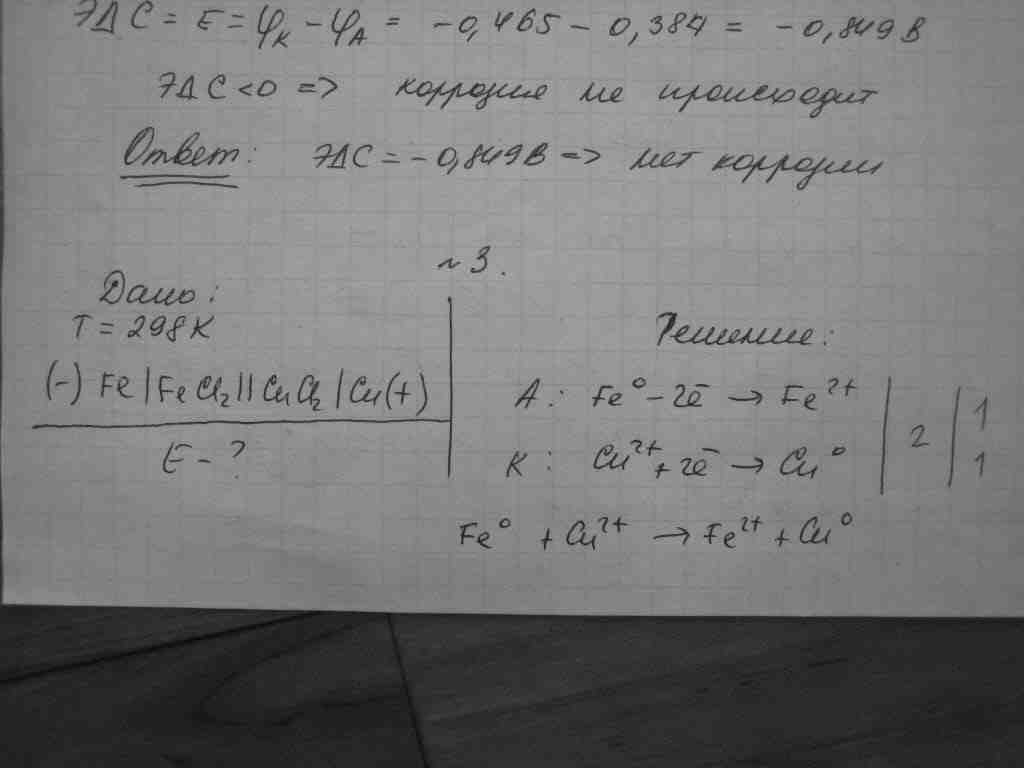 ЭДС = E = φК – φА = -0,465 – 0,384 = -0,849 В
ЭДС < 0 => коррозия не происходит
Ответ: ЭДС = -0,849 В => нет коррозии
~ 3.
Дано:
T = 298 K
(-) Fe | FeCl₂ || CuCl₂ | Cu (+)
E - ?
Решение:
А: Fe⁰ – 2ē → Fe²⁺ | 2 | 1
К: Cu²⁺ + 2ē → Cu⁰ | 1
Fe⁰ + Cu²⁺ → Fe²⁺ + Cu⁰